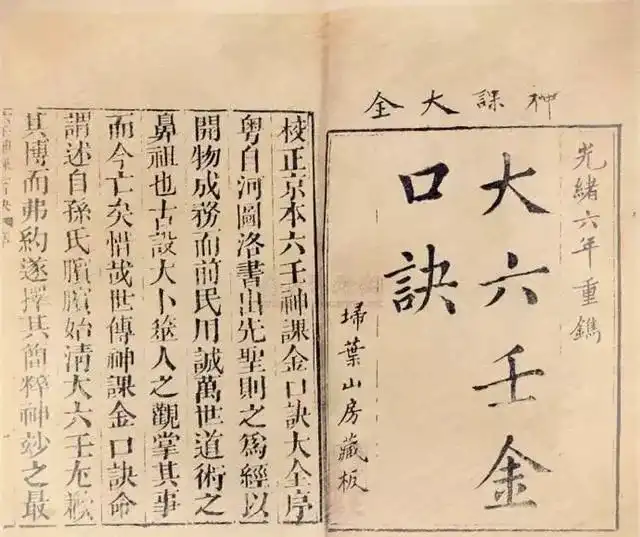 神課大全
光緒六年重鐫
大六壬金
口訣
埽葉山房藏板
校正京本六壬神課金口訣大全序
粤自河圖洛書出先聖則之爲經以
開物成務而前民用誠萬世道術之
鼻祖也古設大卜筮人之觀掌其事
而今亡矣惜哉世傳神課金口訣命
謂述自孫氏臏臏始清大六壬尤
其博而弗約遂擇其簡粹神妙之最